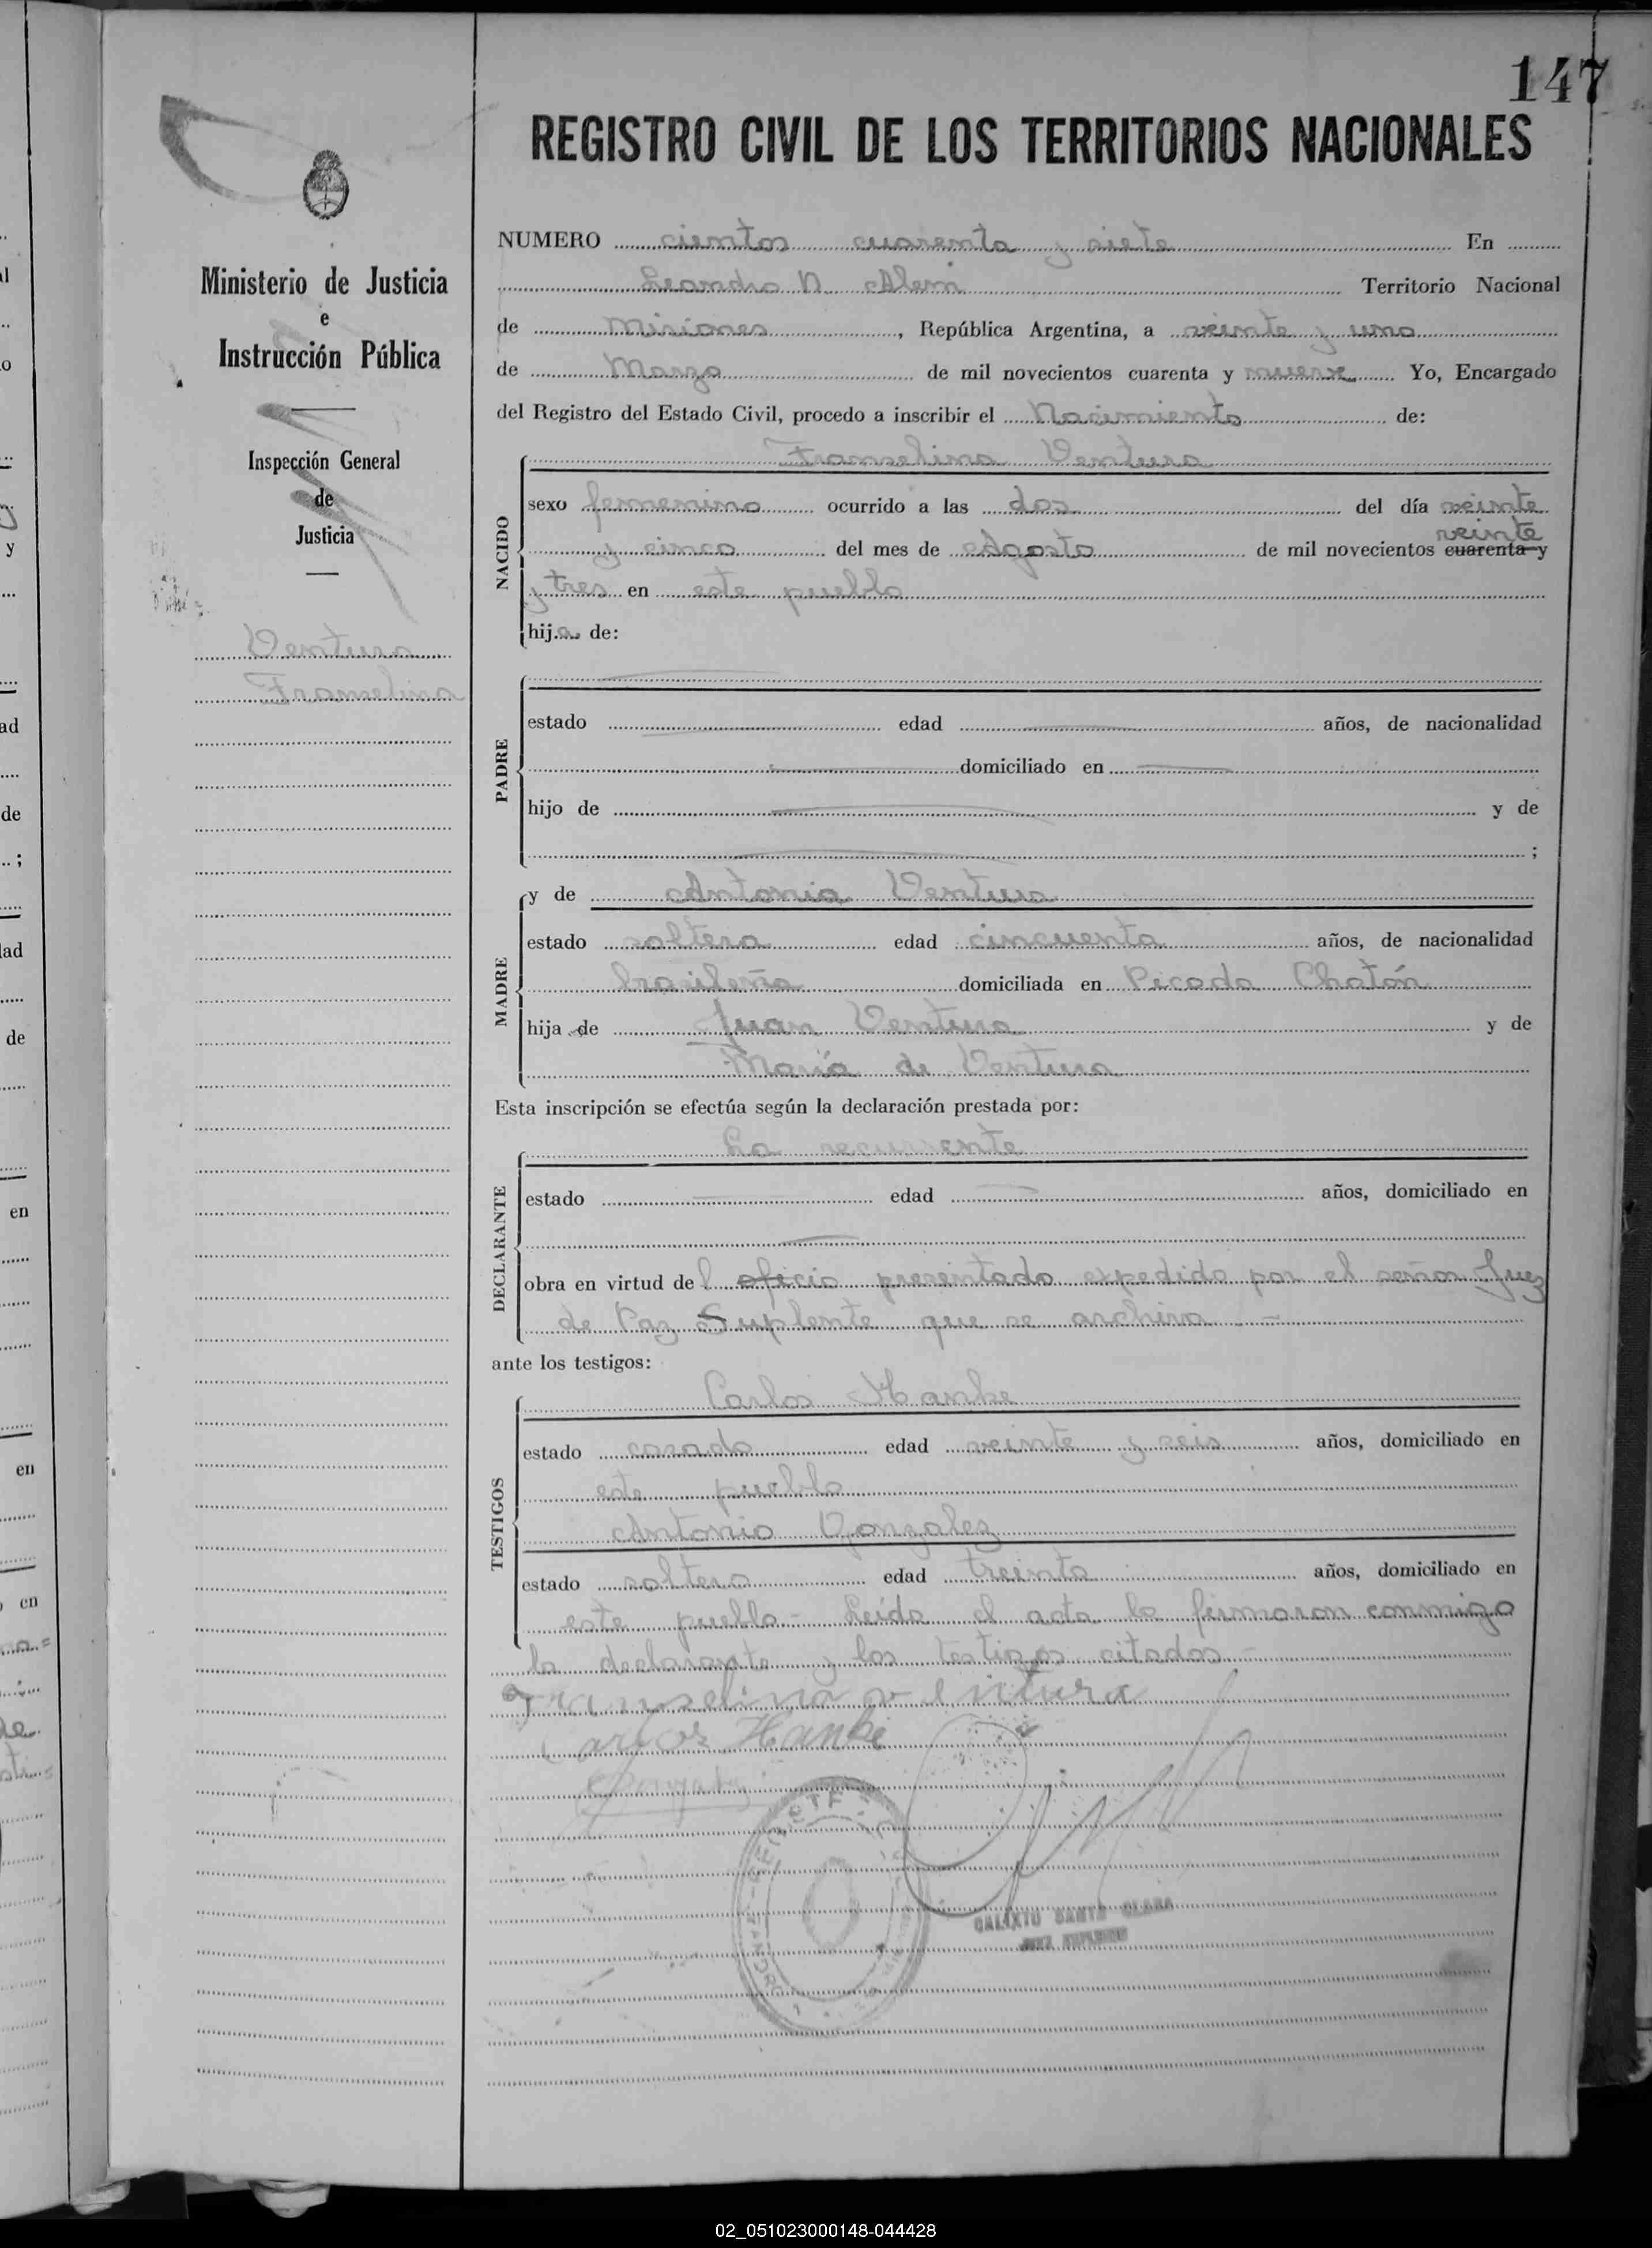 147
REGISTRO CIVIL DE LOS TERRITORIOS NACIONALES
Ministerio de Justicia
e
Instrucción Pública
Inspección General
de
Justicia
Ventura
Franselina
NUMERO cientos cuarenta y siete En
Leandro N. Alem Territorio Nacional
de Misiones, República Argentina, a veinte y uno
de Marzo de mil novecientos cuarenta y nueve Yo, Encargado
del Registro del Estado Civil, procedo a inscribir el Nacimiento de:
Franselina Ventura
NACIDO
sexo femenino ocurrido a las dos del día veinte
veinte
y cinco del mes de Agosto de mil novecientos cuarenta y
y tres en este pueblo
hija de:
PADRE
estado edad años, de nacionalidad
domiciliado en
hijo de y de
;
MADRE
y de Antonia Ventura
estado soltera edad cincuenta años, de nacionalidad
brasileña domiciliada en Picada Chatón
hija de Juan Ventura y de
María de Ventura
Esta inscripción se efectúa según la declaración prestada por:
La recurrente
DECLARANTE
estado edad años, domiciliado en
obra en virtud del oficio presentado expedido por el señor Juez
de Paz Suplente que se archiva.-
ante los testigos:
TESTIGOS
Carlos Hanke
estado casado edad veinte y seis años, domiciliado en
este pueblo
Antonio Gonzalez
estado soltero edad treinta años, domiciliado en
este pueblo - Leída el acta la firmaron conmigo
la declarante y los testigos citados -
Franselina Ventura
Carlos Hanke
CALIXTO SANTA CLARA
JUEZ SUPLENTE
02_051023000148-044428